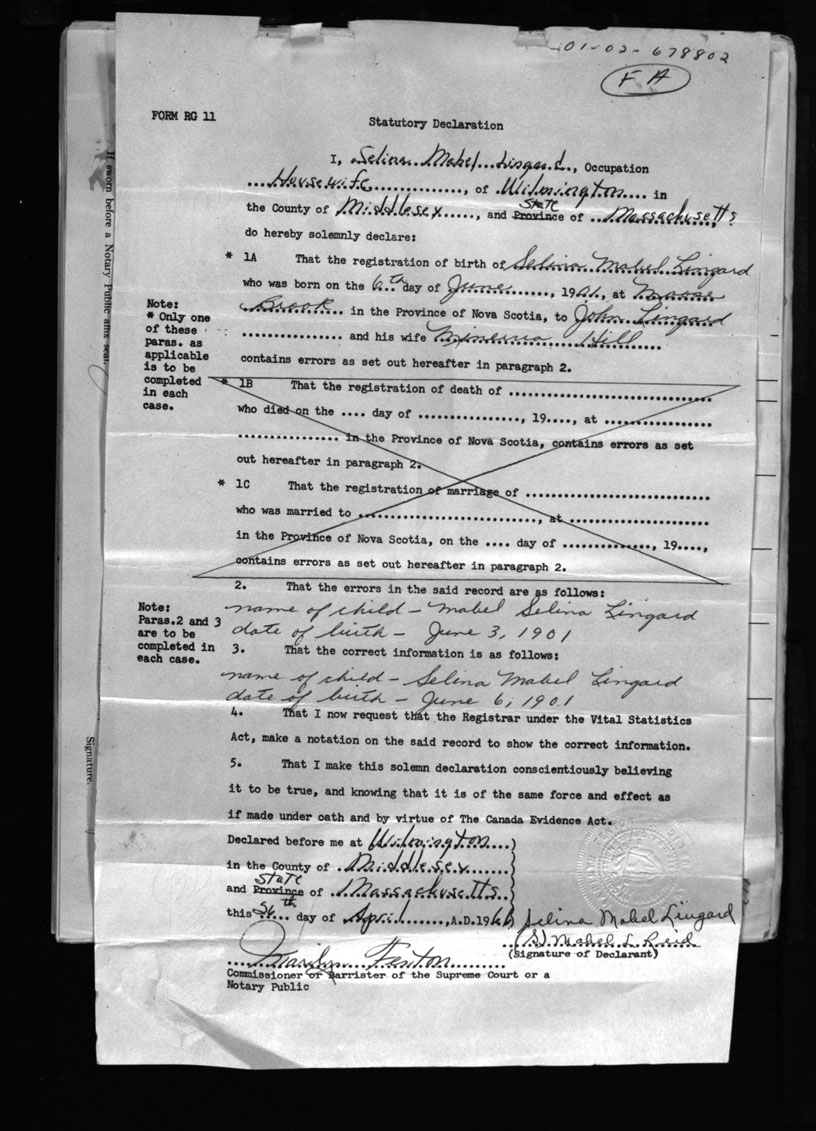 01-02-678802
FA
FORM RG 11
Statutory Declaration
I, Selina Mabel Lingard, Occupation
Housewife, of Wilmington in
the County of Middlesex, and Province State of Massachusetts,
do hereby solemnly declare:
* 1A That the registration of birth of Selina Mabel Lingard
who was born on the 6th day of June, 1901, at Moose
Brook in the Province of Nova Scotia, to John Lingard
and his wife Minerva Hill
contains errors as set out hereafter in paragraph 2.
Note:
* Only one
of these
paras. as
applicable
is to be
completed
in each
case.
* 1B That the registration of death of ................................
who died on the .... day of ..............., 19...., at ................
............... in the Province of Nova Scotia, contains errors as set
out hereafter in paragraph 2.
* 1C That the registration of marriage of .............................
who was married to ..........................., at ......................
in the Province of Nova Scotia, on the .... day of .............., 19....,
contains errors as set out hereafter in paragraph 2.
2. That the errors in the said record are as follows:
name of child - Mabel Selina Lingard
date of birth - June 3, 1901
Note:
Paras.2 and 3
are to be
completed in
each case.
3. That the correct information is as follows:
name of child - Selina Mabel Lingard
date of birth - June 6, 1901
4. That I now request that the Registrar under the Vital Statistics
Act, make a notation on the said record to show the correct information.
5. That I make this solemn declaration conscientiously believing
it to be true, and knowing that it is of the same force and effect as
if made under oath and by virtue of The Canada Evidence Act.
Declared before me at Wilmington
in the County of Middlesex
and Province State of Massachusetts
this day of April, A.D. 1966
Selina Mabel Lingard
(S) Mabel L Reid
(Signature of Declarant)
Marilyn Fenton
Commissioner or Barrister of the Supreme Court or a
Notary Public
If sworn before a Notary Public affix seal.
Signature.